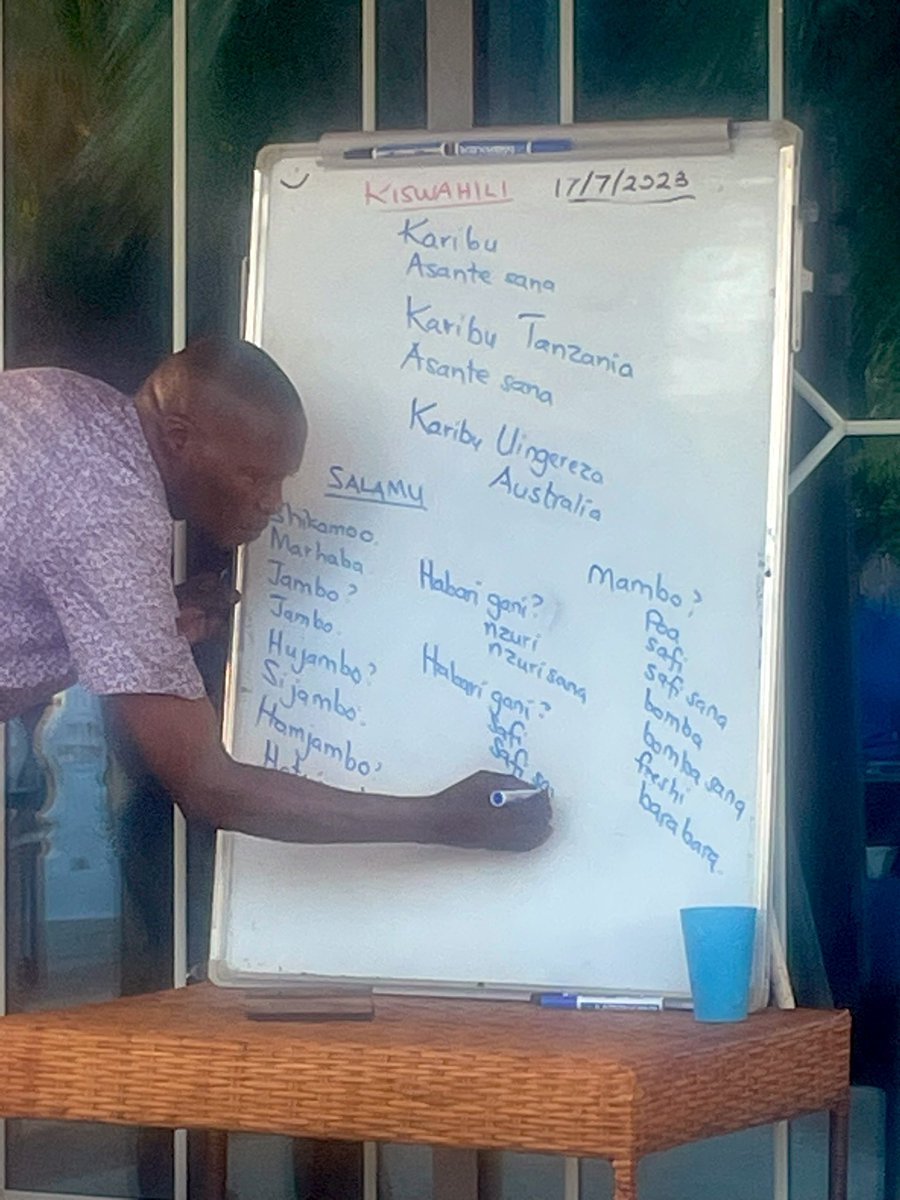 KISWAHILI 17/7/2023
Karibu
Asante sana
Karibu Tanzania
Asante sana
Karibu Uingereza
Australia
SALAMU
Shikamoo.
Marhaba
Jambo?
Jambo.
Hujambo?
Sijambo.
Hamjambo?
Habari gani?
nzuri
nzuri sana
Habari gani?
safi
safi sa
Mambo?
Poa
safi
safi sana
bomba
bomba sana
freshi
barabara.